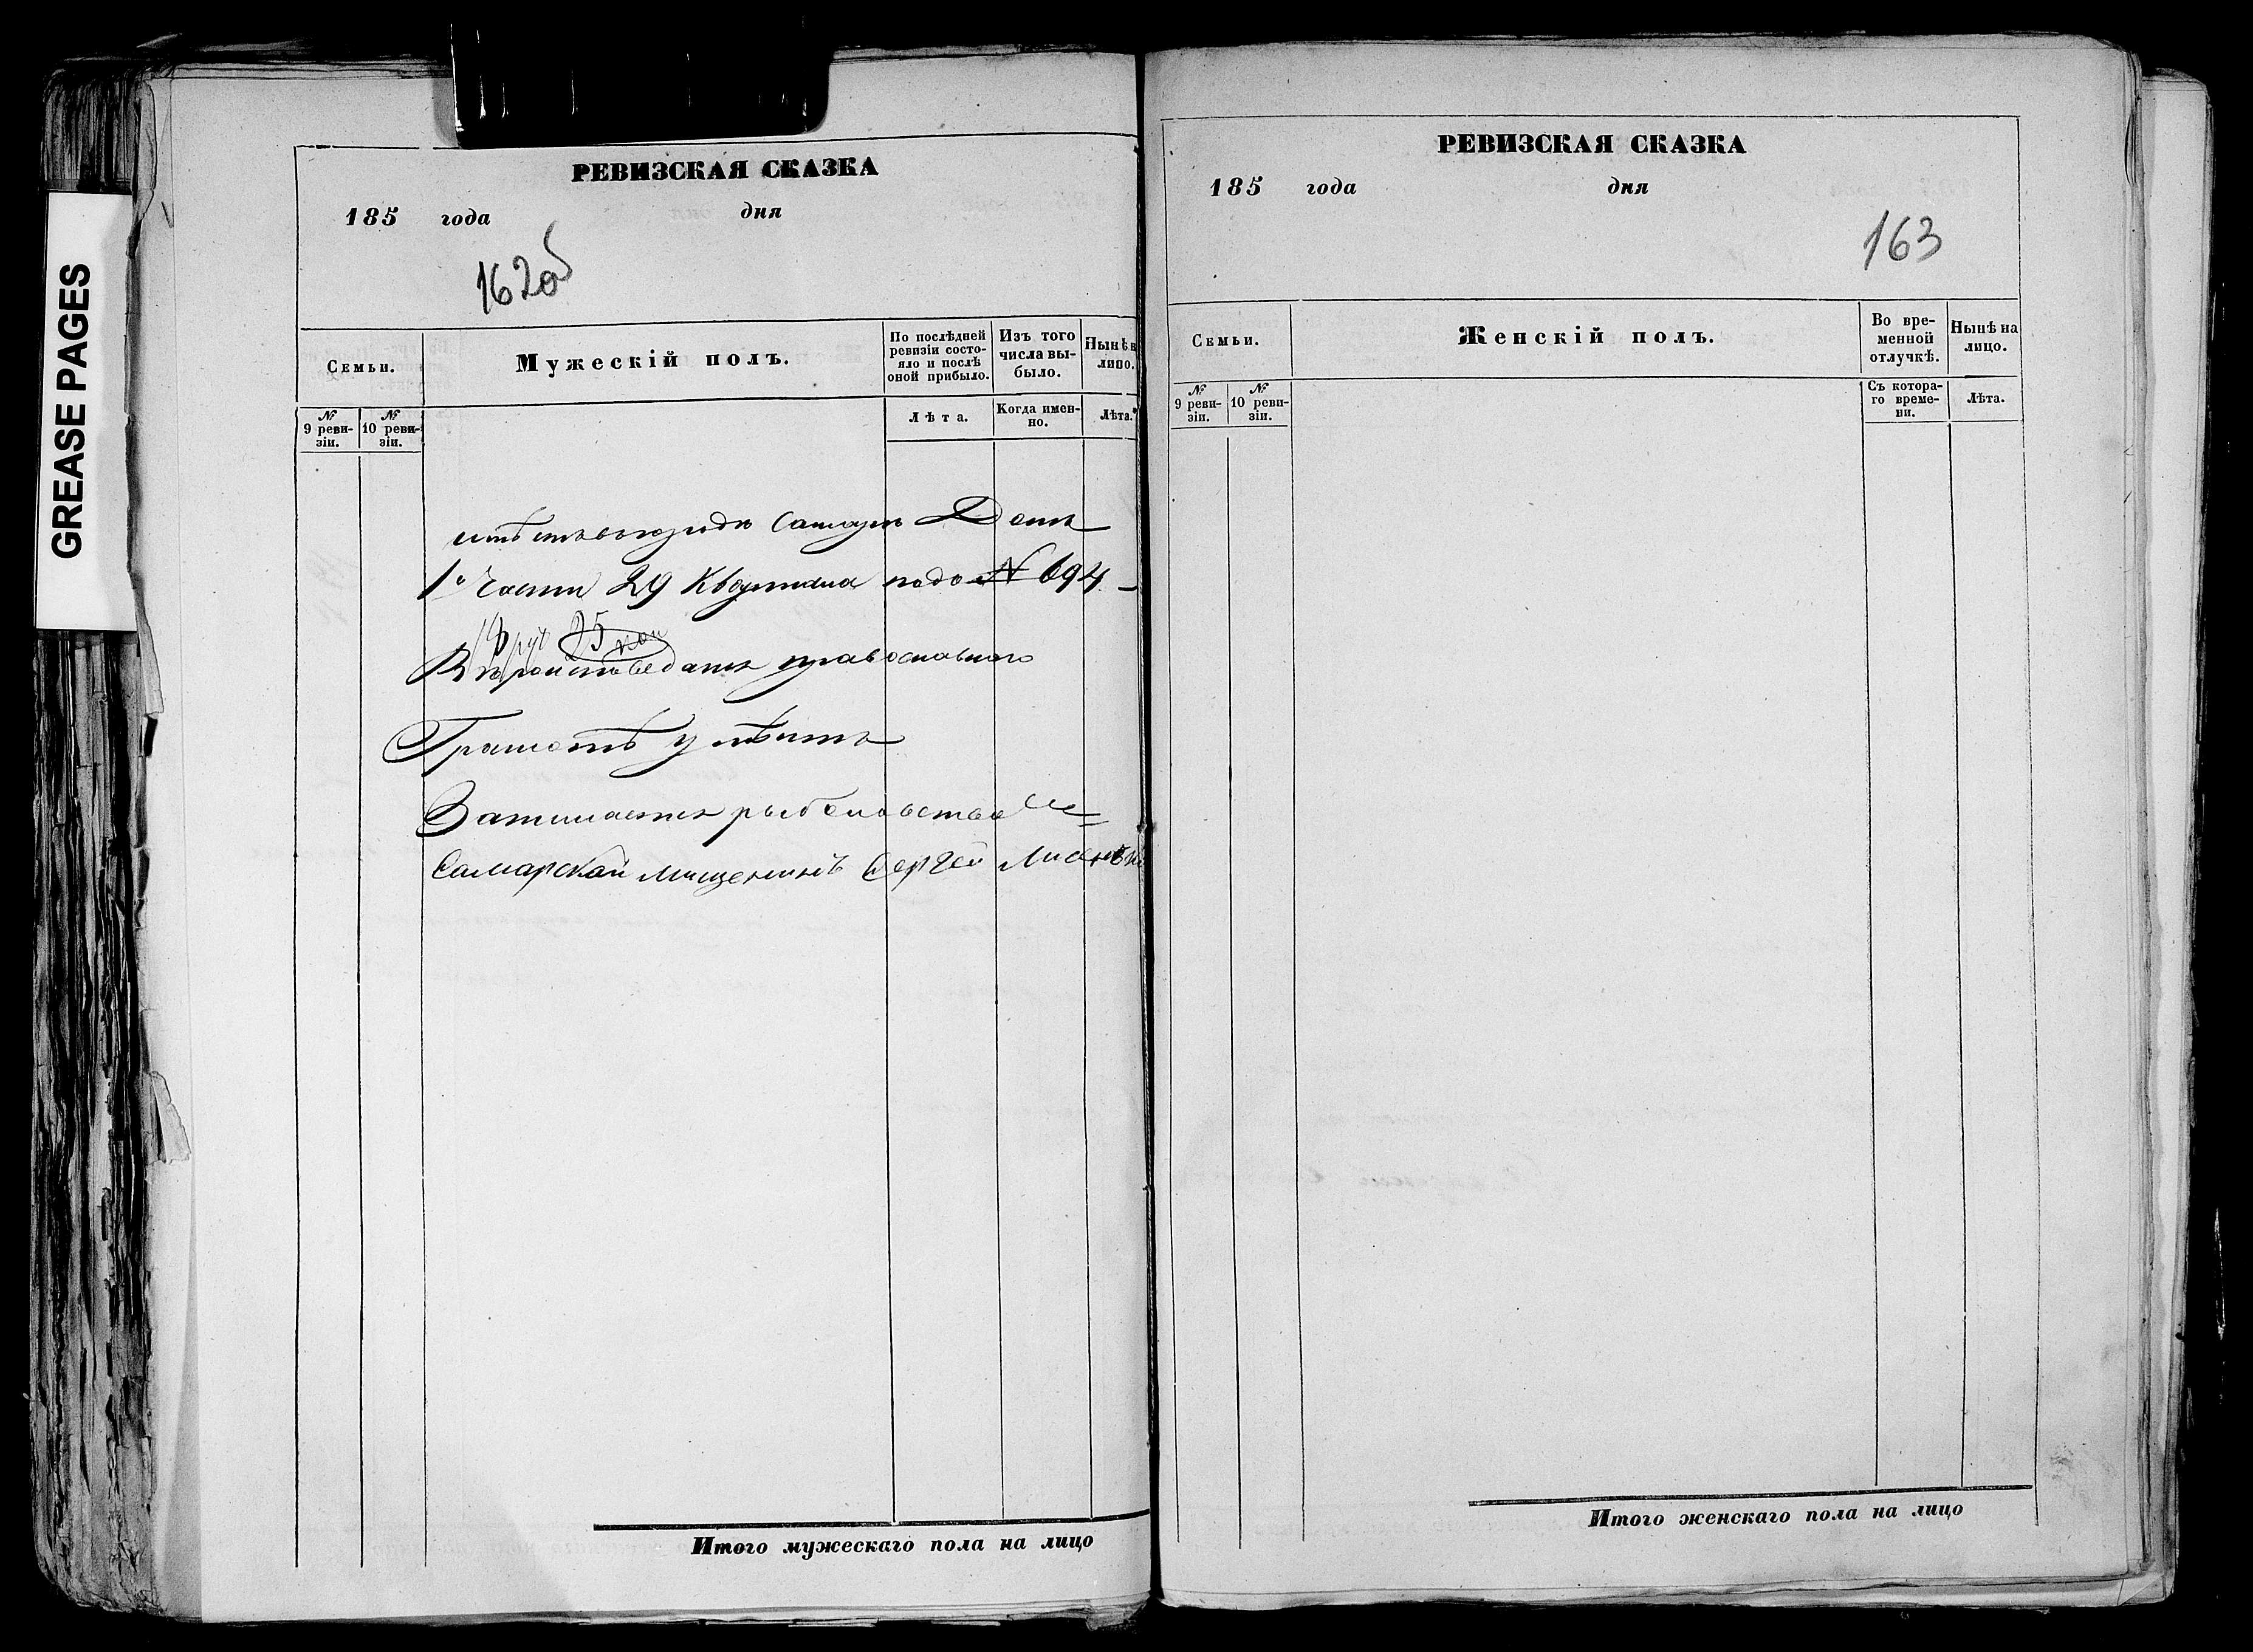 GREASE PAGES
РЕВИЗСКАЯ СКАЗКА
185 года дня
162об
Семьи.
Мужескій полъ.
По послѣдней ревизіи состояло и послѣ оной прибыло.
Изъ того числа выбыло.
Нынѣ н лицо.
№ 9 ревизіи.
№ 10 ревизіи.
Лѣта.
Когда именно.
Лѣта.
имѣетъ въ городѣ Самарѣ Домъ
1й части 29 Квартала подъ № 694
руб 25 коп
Вѣроисповеданія православного
Грамотѣ умѣетъ
Занимается рыболовствомъ
Самарской мищенинъ Сергей
Итого мужескаго пола на лицо
РЕВИЗСКАЯ СКАЗКА
185 года дня
163
Семьи.
Женскій полъ.
Во временной отлучкѣ.
Нынѣ на лицо.
№ 9 ревизіи.
№ 10 ревизіи.
Съ котораго времени.
Лѣта.
Итого женскаго пола на лицо